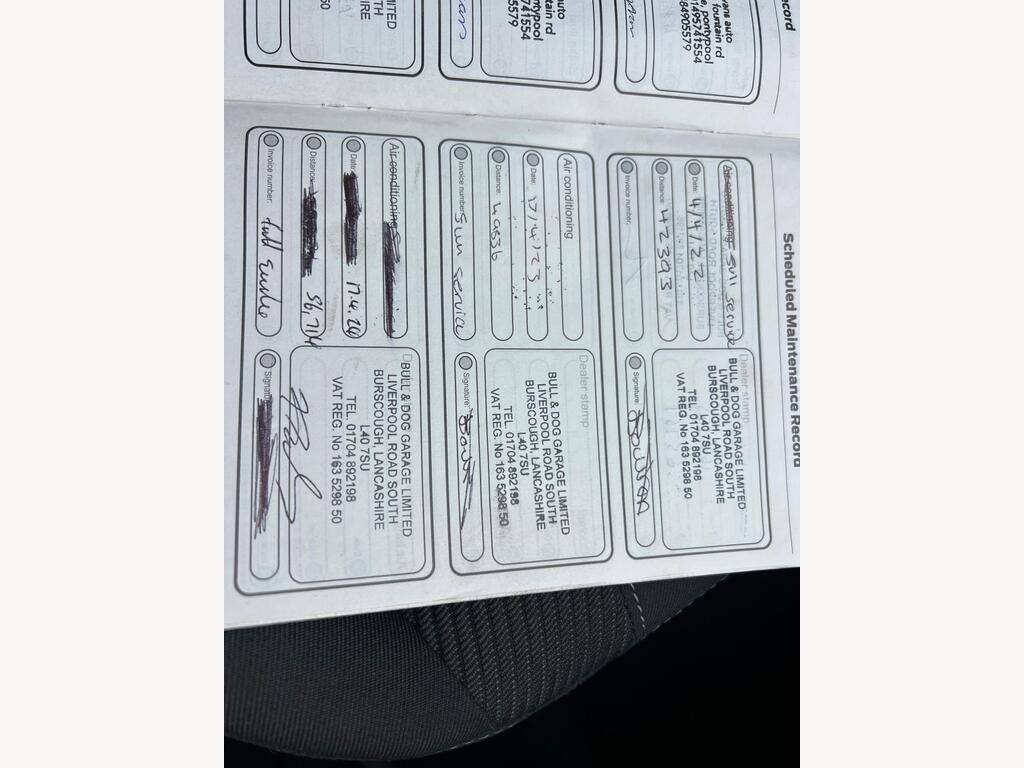 ecord
vans auto
fountain rd
e, pontypool
01495741554
84905579
uto
tain rd
ntypool
741554
5579
IMITED
TH
IRE
50
Scheduled Maintenance Record
Air conditioning = Full service
Date: 4/4/22
Distance: 42393
Invoice number:
Dealer stamp
BULL & DOG GARAGE LIMITED
LIVERPOOL ROAD SOUTH
BURSCOUGH, LANCASHIRE
L40 7SU
TEL. 01704 892198
VAT REG. No 163 5298 50
Signature:
Air conditioning
Date: 17/4/23
Distance: 49536
Invoice number: Full service
Dealer stamp
BULL & DOG GARAGE LIMITED
LIVERPOOL ROAD SOUTH
BURSCOUGH, LANCASHIRE
L40 7SU
TEL. 01704 892198
VAT REG. No 163 5298 50
Signature:
Air conditioning
Date: 17.4.24
Distance: 56,714
Invoice number: full service
BULL & DOG GARAGE LIMITED
LIVERPOOL ROAD SOUTH
BURSCOUGH, LANCASHIRE
L40 7SU
TEL. 01704 892198
VAT REG. No 163 5298 50
Signature: